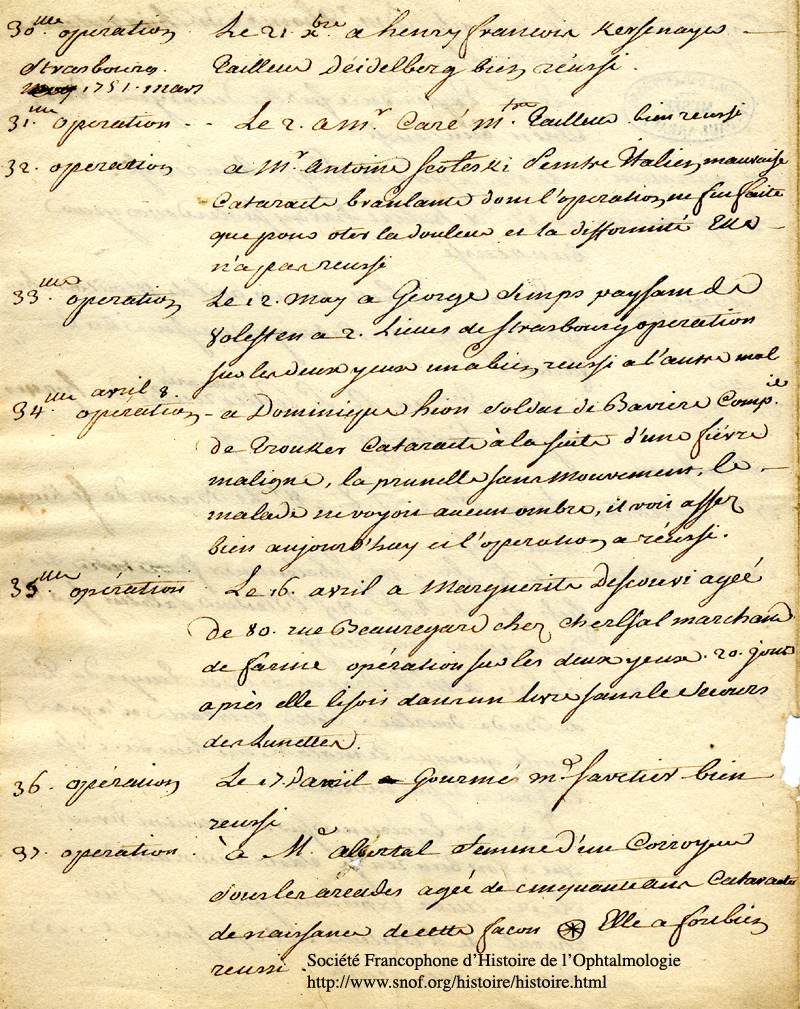 30.me opération Le 21. xbre a henry francois Kersenaye
Strasbourg. Tailleur Déidelberg bien réussi.
1751. mars
31.me operation - - Le 2. a Mr. Caré mtre. Tailleur bien reussi
32. operation a Mr. Antoine Scoteski Peintre Italien, mauvaise
Cataracte branlante dont l'operation ne fut faite
que pour oter la douleur et la difformité Elle
n'a pas reussi
33.me operation Le 12. may a George Simps paysan de
Volesten a 2. Lieues de Strasbourg operation
sur les deux yeux un a bien reussi a l'autre mal
avril 8.
34.me opération - a Dominique hion soldat de Baviere Compie.
de Trouker Cataracte à la suite d'une fiévre
maligne, la prunelle sans mouvement, le
malade ne voyoit aucun ombre, il voit assez
bien aujourd'huy et l'operation a réussi.
35.me opération Le 16. avril a Marguerite Descouvi agéé
de 80. rue Beauregard chez cherlsal marchand
de farine opération sur les deux yeux. 20. jours
après elle lisoit dans un livre sans le secours
des Lunettes.
36. opération Le 17. avril a Gourmés md. savetier bien
reussi
37. operation. à Me. albertal femme d'un Corroyeur
sous les arcades agéé de cinquante ans Cataracte
de naissance de cette facon Elle a fort bien
reussi.
Société Francophone d'Histoire de l'Ophtalmologie
http://www.snof.org/histoire/histoire.html